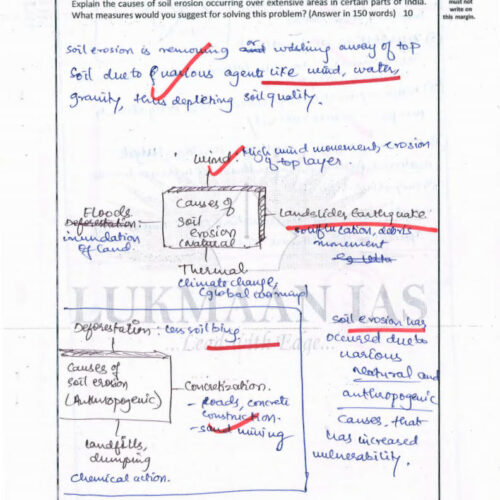 Explain the causes of soil erosion occurring over extensive areas in certain parts of India.
What measures would you suggest for solving this problem? (Answer in 150 words) 10
must not
write on
this margin.
soil erosion is removing or washing away of top
soil due to various agents like wind, water,
gravity, thus depleting soil quality.
wind: High wind movement, erosion
of top layer.
Floods
Deforestation
inundation
of land.
Causes of
soil
erosion
(natural
Landslides, Earthquake
debris
movement
Thermal
climate change,
(global warming
LUKMAAN IAS
...Lead with Edge...
Deforestation: less soil bing
Causes of
soil erosion
(Anthropogenic)
Concretization.
- Roads, concrete
construction.
- sand mining
landfills,
dumping
chemical action.
soil erosion has
occured due to
various
Natural and
anthropogenic
causes, that
has increased
vulnerability.